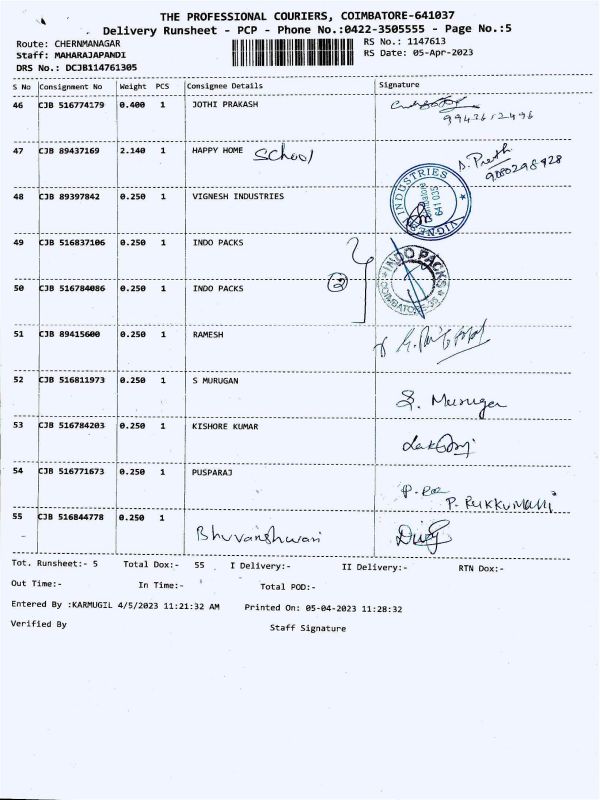 THE PROFESSIONAL COURIERS, COIMBATORE-641037
Delivery Runsheet - PCP - Phone No.:0422-3505555 - Page No.:5
Route: CHERNMANAGAR RS No.: 1147613
Staff: MAHARAJAPANDI RS Date: 05-Apr-2023
DRS No.: DCJB114761305
S No Consignment No Weight PCS Consignee Details Signature
46 CJB 516774179 0.400 1 JOTHI PRAKASH
9943612496
47 CJB 89437169 2.140 1 HAPPY HOME School
9080298928
48 CJB 89397842 0.250 1 VIGNESH INDUSTRIES
VIGNESH INDUSTRIES
Coimbatore
641 035
49 CJB 516837106 0.250 1 INDO PACKS
INDO PACKS
COIMBATORE-35
50 CJB 516784086 0.250 1 INDO PACKS 2
51 CJB 89415600 0.250 1 RAMESH
52 CJB 516811973 0.250 1 S MURUGAN
S. Murugan
53 CJB 516784203 0.250 1 KISHORE KUMAR
54 CJB 516771673 0.250 1 PUSPARAJ
P. RUKKUMANI
55 CJB 516844778 0.250 1
Bhuvaneshwari
Tot. Runsheet:- 5 Total Dox:- 55 I Delivery:- II Delivery:- RTN Dox:-
Out Time:- In Time:- Total POD:-
Entered By :KARMUGIL 4/5/2023 11:21:32 AM Printed On: 05-04-2023 11:28:32
Verified By Staff Signature